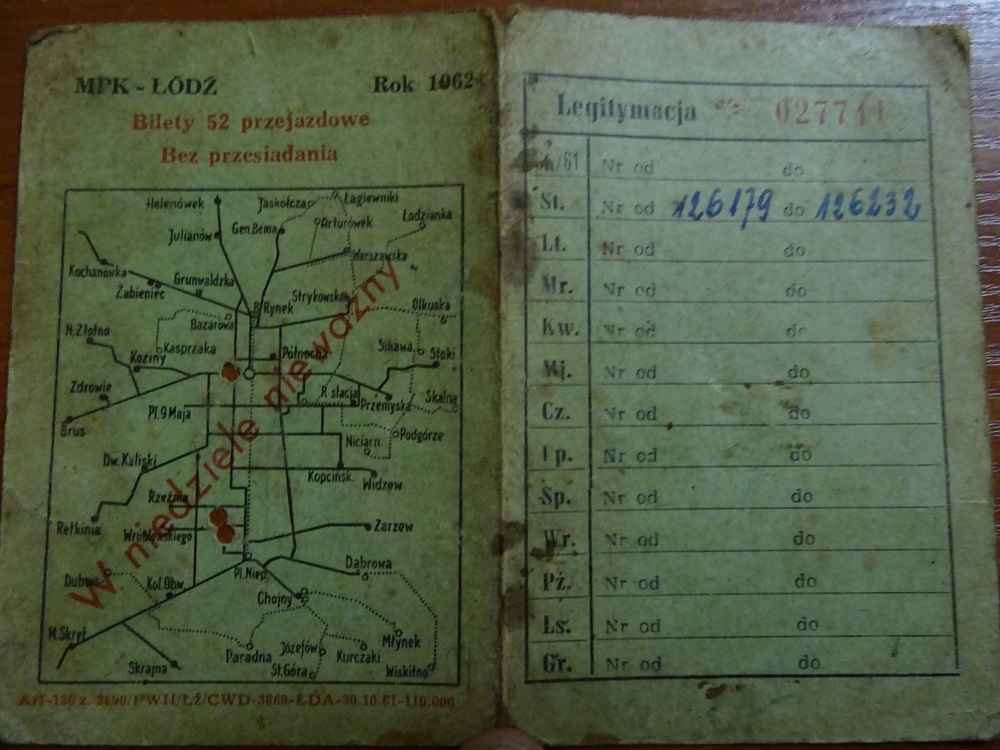 MPK - ŁÓDŹ Rok 1962
Bilety 52 przejazdowe
Bez przesiadania
Helenówek
Jaskółcza
Łagiewniki
Julianów
Gen.Bema
Arturówek
Łodzianka
Warszawska
Kochanówka
Żabieniec
Grunwaldzka
Strykowska
B.Rynek
Olkuska
Bazarowa
N.Złotno
Kasprzaka
Koziny
Północna
Sikawa
Stoki
Zdrowie
R-stacja
Przemyska
Skalna
Pl.9 Maja
Brus
Niciarn.
Podgórze
Dw.Kaliski
Kopcińsk.
Widzew
Rzeźnia
Retkinia
Wróblewskiego
Zarzew
Pl.Niep.
Dąbrowa
Kol.Obw.
Chojny
M.Skręt
Młynek
Skrajna
Paradna
Józefów
Kurczaki
St.Góra
Wiskitno
W niedziele nieważny.
z. 3890/PWII/ŁŻ/CWD-3869-ŁDA-30.10.61-110.000
Legitymacja 027741
/61 Nr od do
St. Nr od 126179 do 126232
Lt. Nr od do
Mr. Nr od do
Kw. Nr od do
Mj. Nr od do
Cz. Nr od do
Lp. Nr od do
Sp. Nr od do
Wr. Nr od do
Pź. Nr od do
Ls. Nr od do
Gr. Nr od do